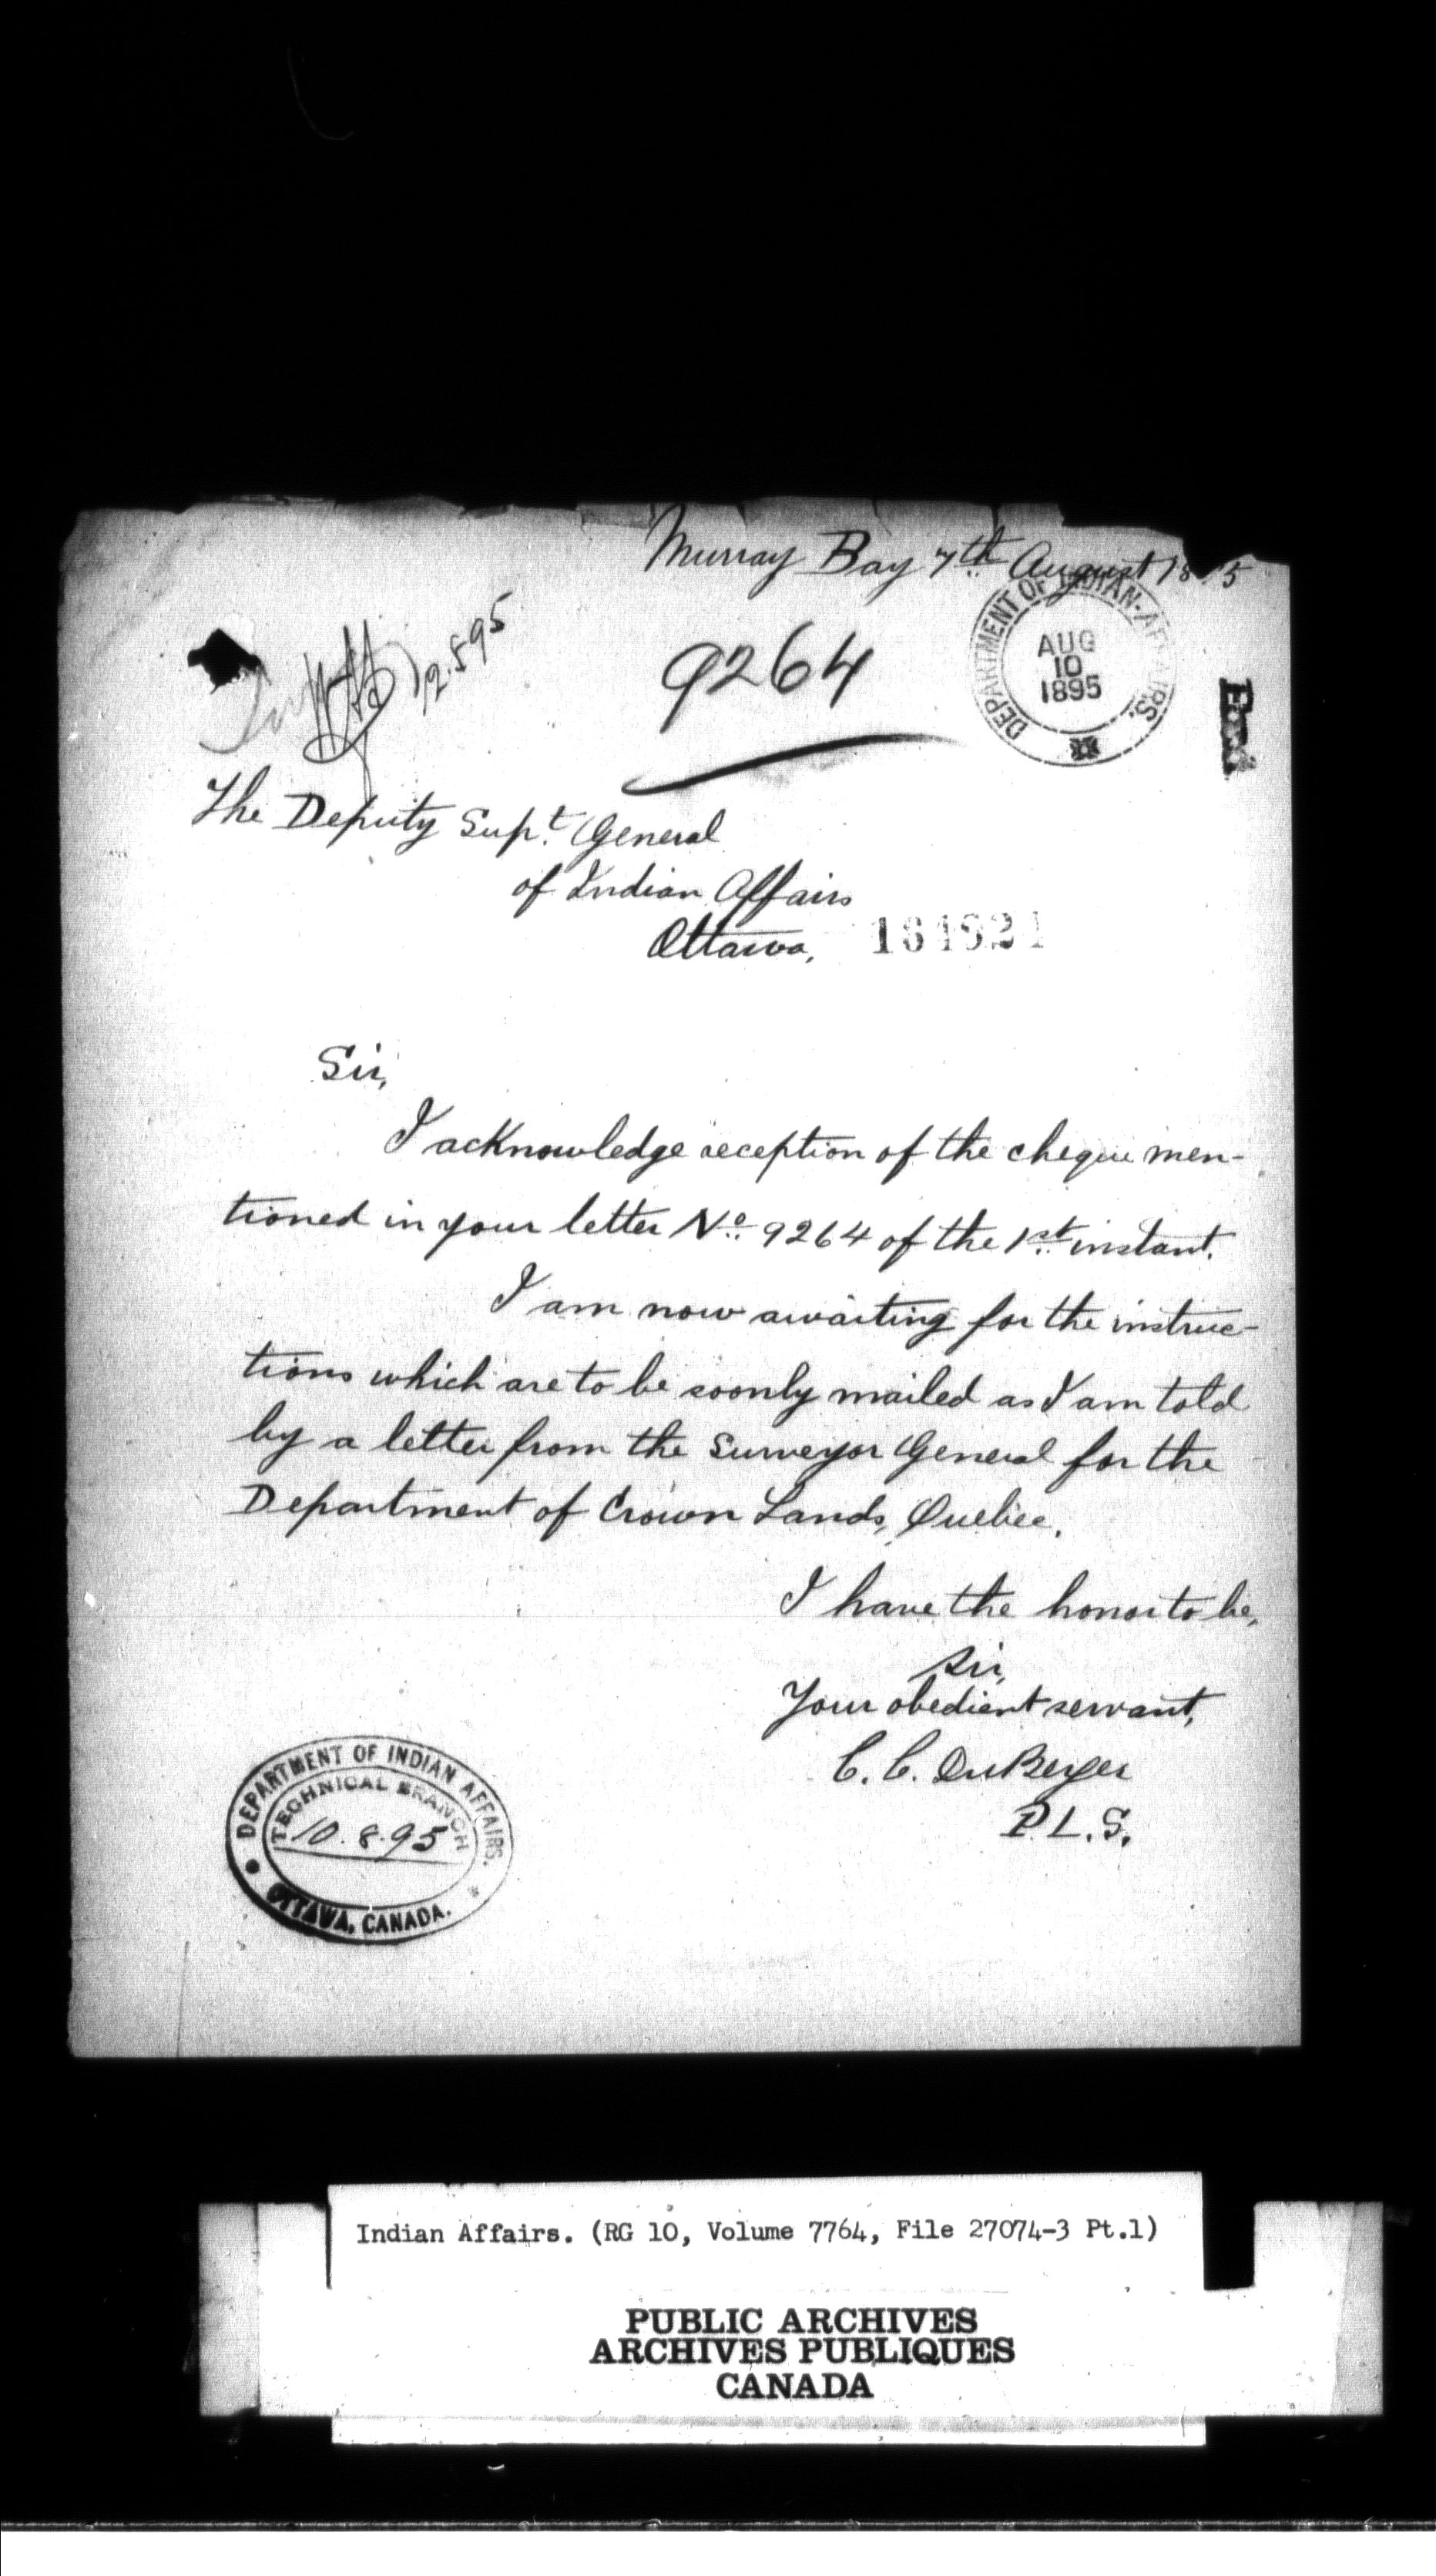 Murray Bay 7th August 18 5
DEPARTMENT OF INDIAN-AFFAIRS.
AUG
10
1895
12.8.95
9264
The Deputy Supt. General
of Indian Affairs
Ottawa,
Sir,
I acknowledge reception of the cheque men-
tioned in your letter No. 9264 of the 1st instant.
I am now awaiting for the instruc-
tions which are to be soonly mailed as I am told
by a letter from the Surveyor General for the
Department of Crown Lands, Quebec.
I have the honor to be,
Sir,
Your obedient servant,
C. C. DuBerger
P.L.S.
DEPARTMENT OF INDIAN AFFAIRS.
TECHNICAL BRANCH
10.8.95
OTTAWA, CANADA.
Indian Affairs. (RG 10, Volume 7764, File 27074-3 Pt.1)
PUBLIC ARCHIVES
ARCHIVES PUBLIQUES
CANADA